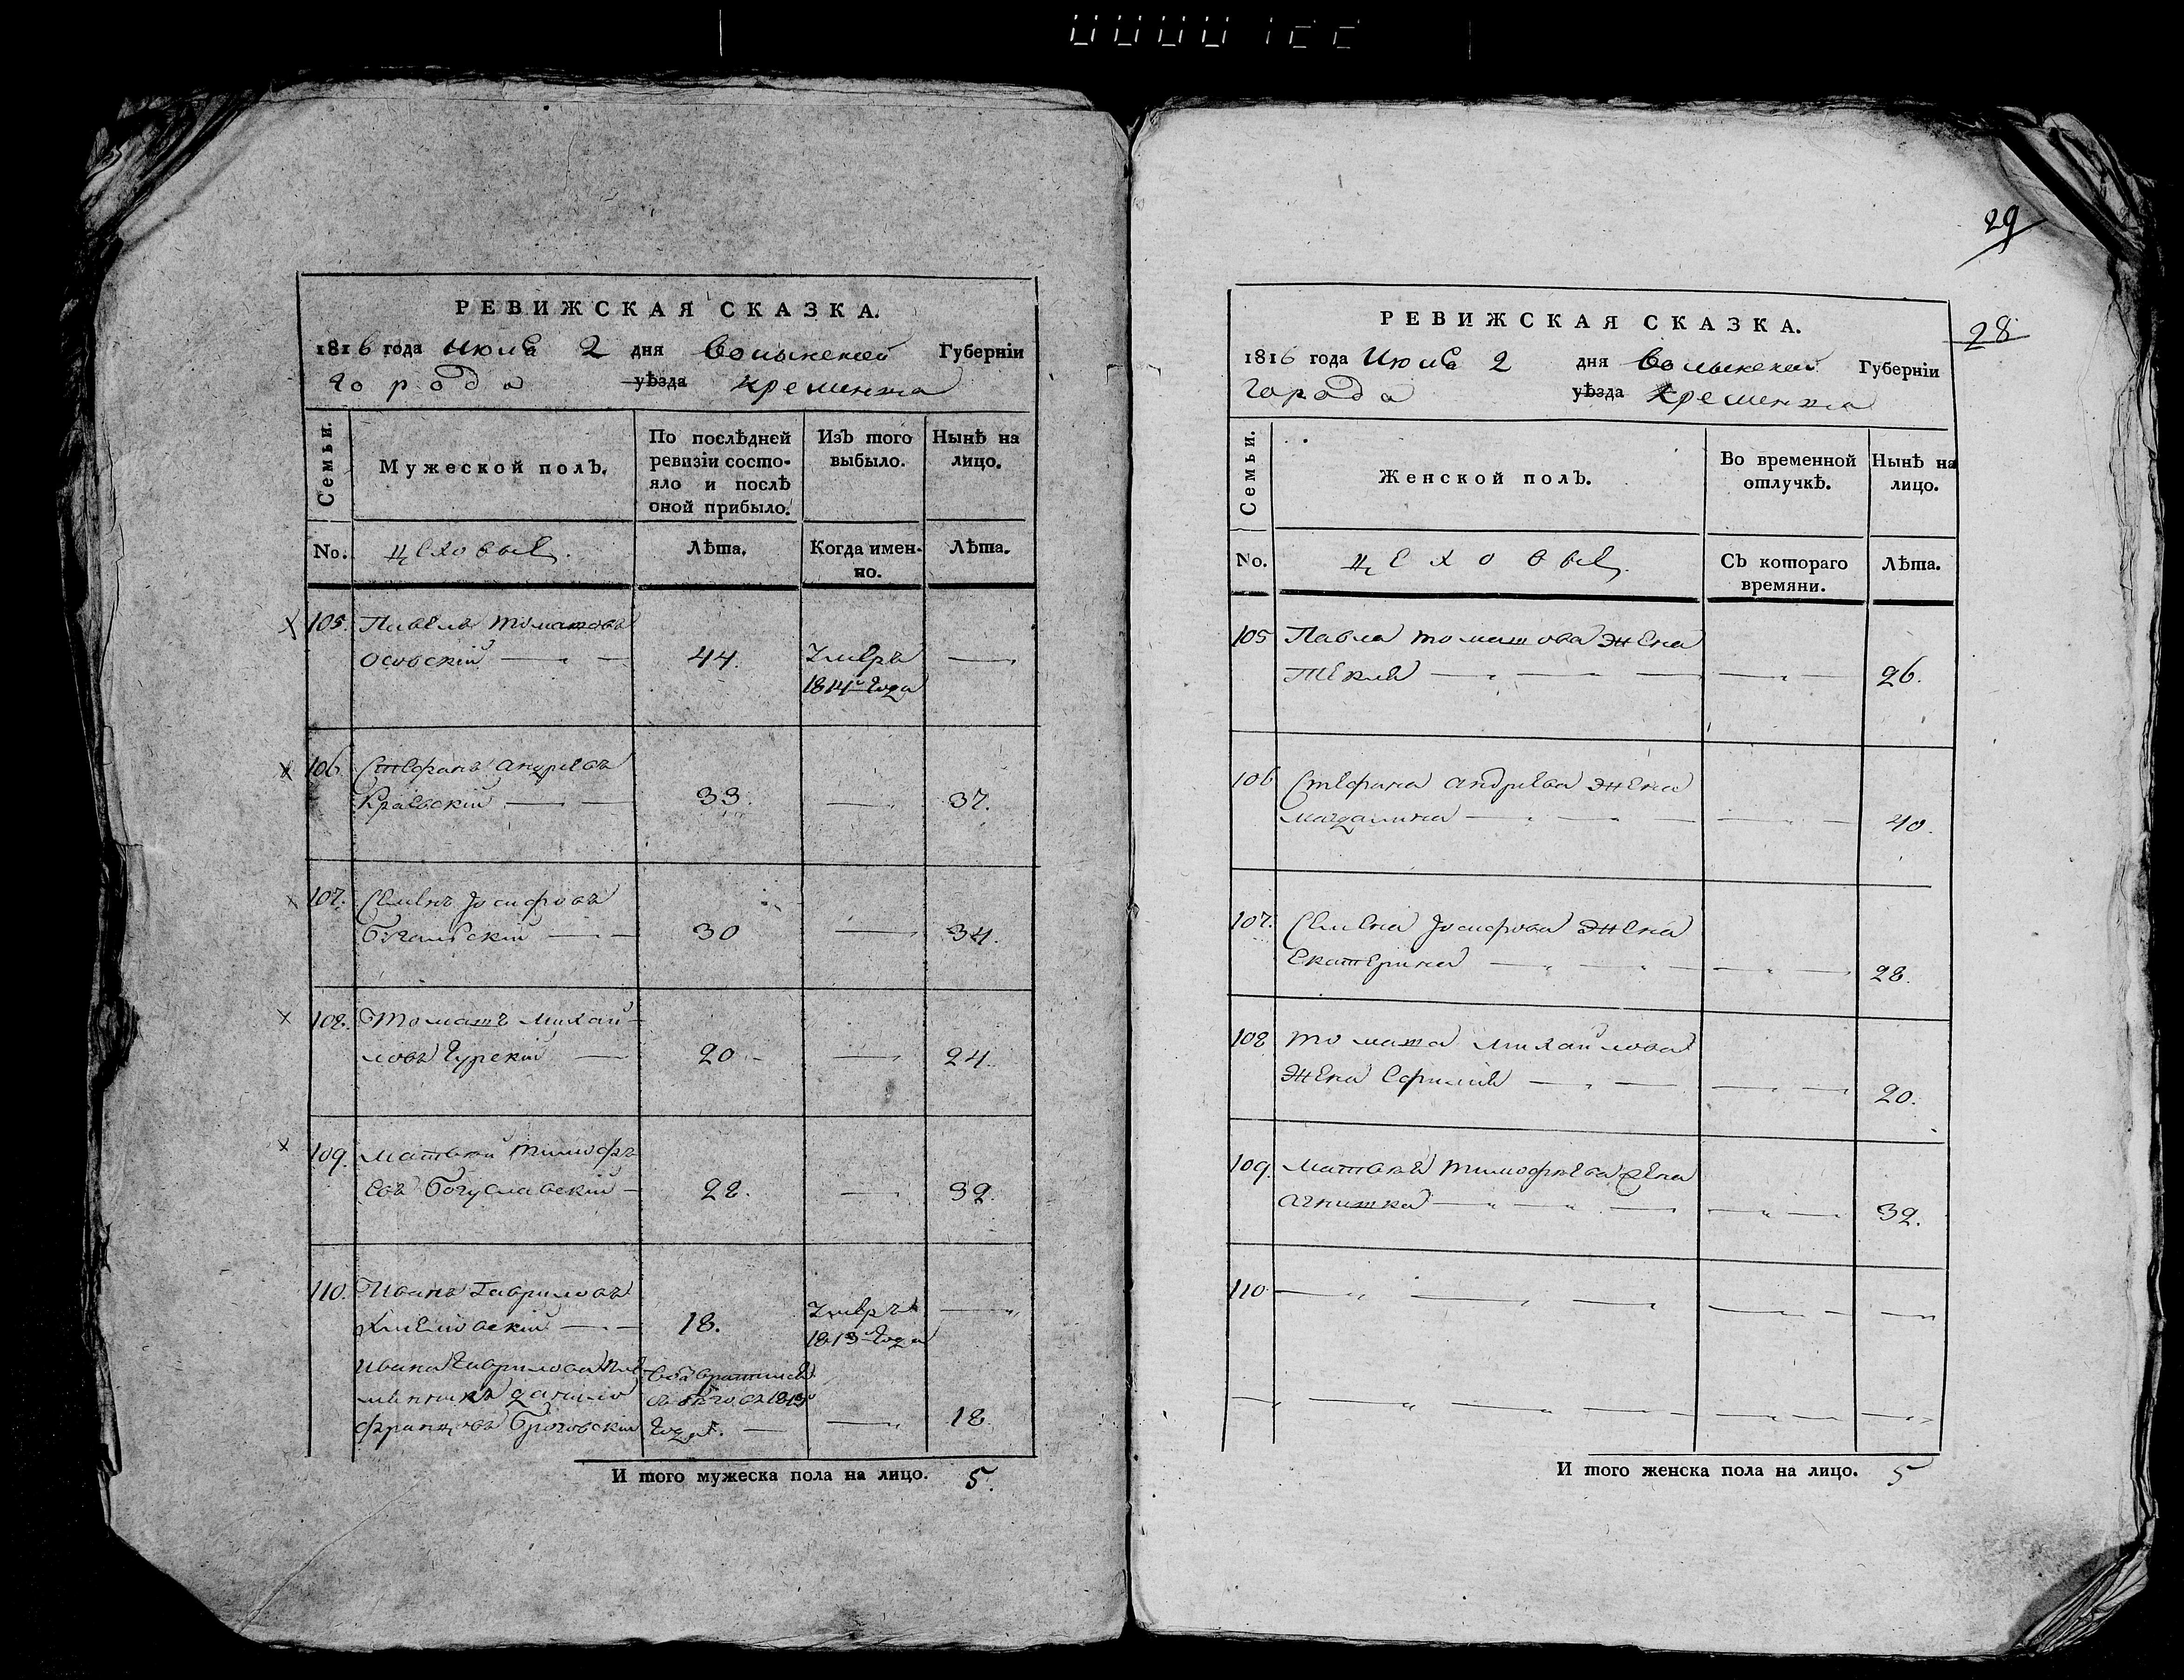 29
РЕВИЖСКАЯ СКАЗКА.
1816 года Июля 2 дня Волынской Губерніи
Города уѣзда Кременца
Семьи.
Мужеской полъ.
По послѣдней ревизіи состояло и послѣ оной прибыло.
Изъ того выбыло.
Нынѣ на лицо.
No.
Цеховые.
Лѣта.
Когда именно.
Лѣта.
105. Павелъ Томашовъ
Осовскій 44. умеръ
1814 года
106 Стефанъ Андреевъ
33. 37.
107. Семенъ Іосифовъ
30 34.
108. Томашъ Михай-
ловъ Гурскій 20 24.
109. Матвей Тимофѣ
евъ Богуславскій 28. 32.
110. Иванъ Гавриловъ
18. умеръ
1813 года
Ивана Гаврилова пле
мянникъ Данило возвратился
съ бѣговъ 1813
Францовъ года. 18.
И того мужеска пола на лицо. 5.
РЕВИЖСКАЯ СКАЗКА.
28
1816 года Июля 2 дня Волынской Губерніи
Города уѣзда Кременца
Семьи.
Женской полъ.
Во временной отлучкѣ.
Нынѣ на лицо.
No.
Цеховые.
Съ котораго времяни.
Лѣта.
105 Павла Томашова жена
Текля 26.
106 Стефана Андреева жена
Магдалина 40.
107. Семена Іосифова жена
Екатерина 28.
108 Томаша Михайлова
жена 20.
109. Матвея Тимофѣева жена
Агнишка 32.
110
И того женска пола на лицо. 5